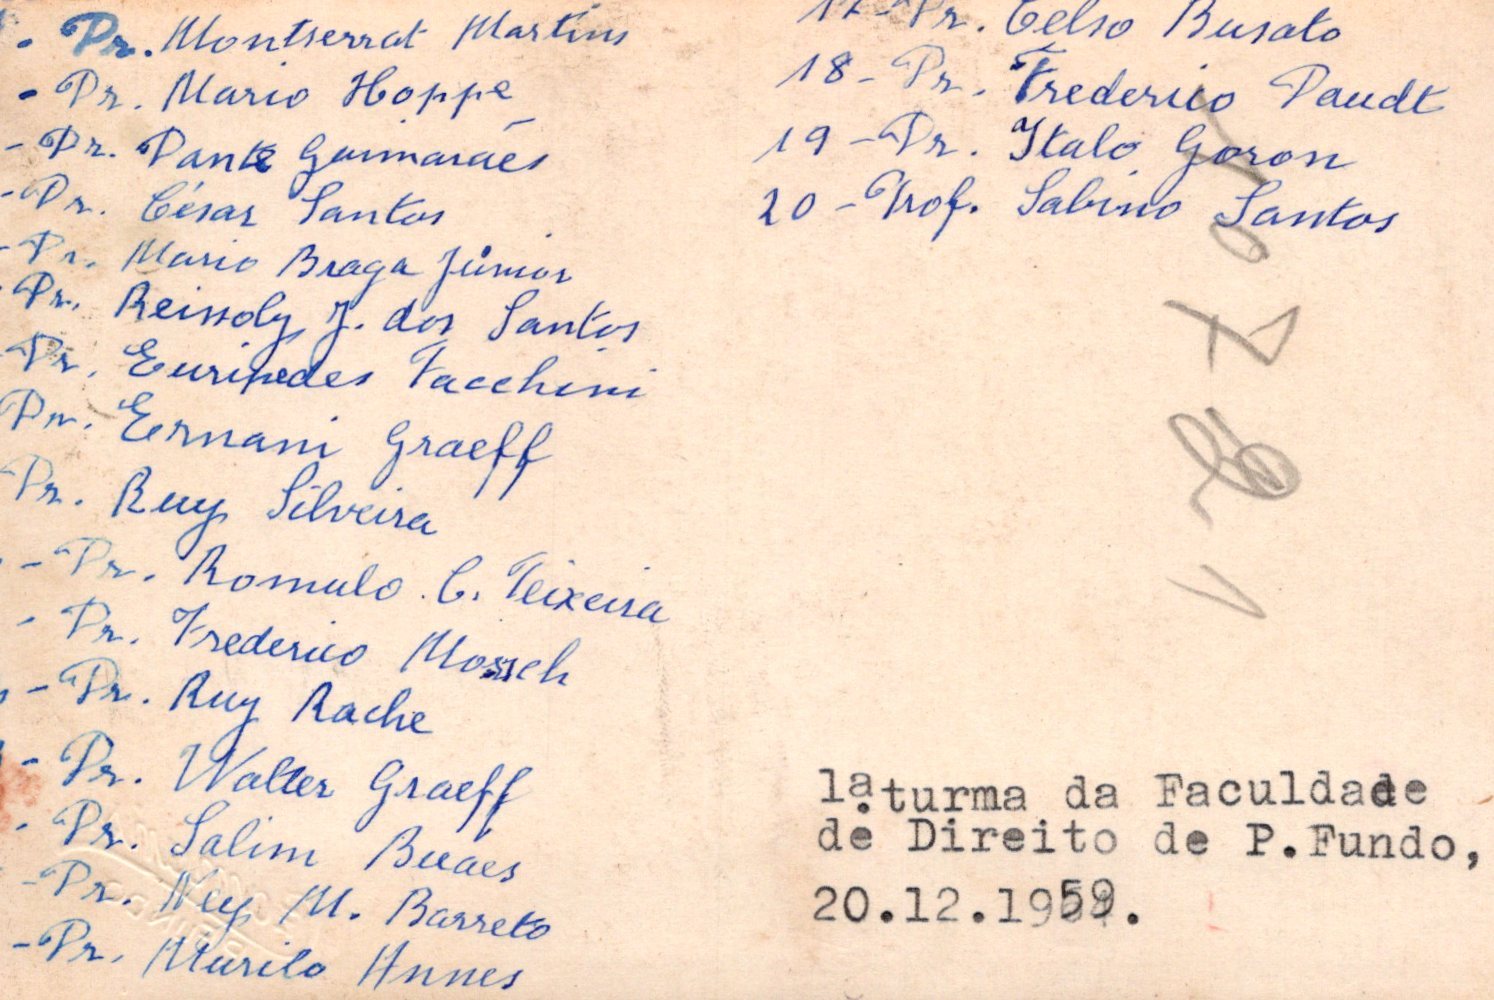 - Pr. Montserrat Martins
- Pr. Mario Hoppe
- Pr. Dante Guimarães
- Pr. César Santos
- Pr. Mario Braga Júnior
Pr. Reissoly J. dos Santos
Pr. Euripedes Facchini
Pr. Ernani Graeff
Pr. Ruy Silveira
- Pr. Romulo C. Teixeira
- Pr. Frederico Morsch
- Pr. Ruy Rache
- Pr. Walter Graeff
- Pr. Salim Buaes
- Pr. Ney M. Barreto
- Pr. Murilo Annes
17 - Pr. Celso Busato
18 - Pr. Frederico Daudt
19 - Pr. Italo Goron
20 - Prof. Sabino Santos
1ª turma da Faculdade
de Direito de P.Fundo,
20.12.1959.